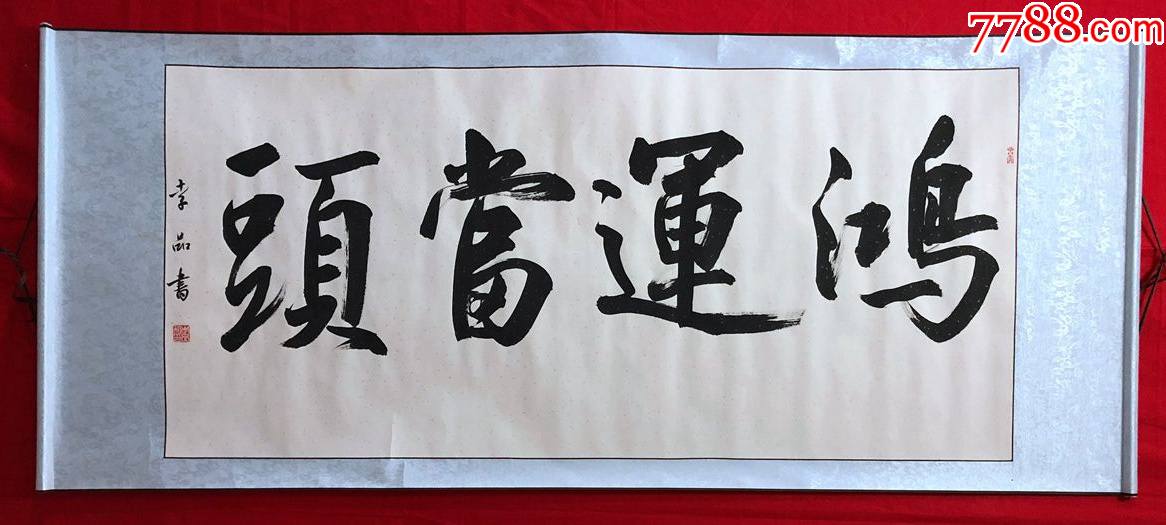 7788.com
鴻運當頭
李品書